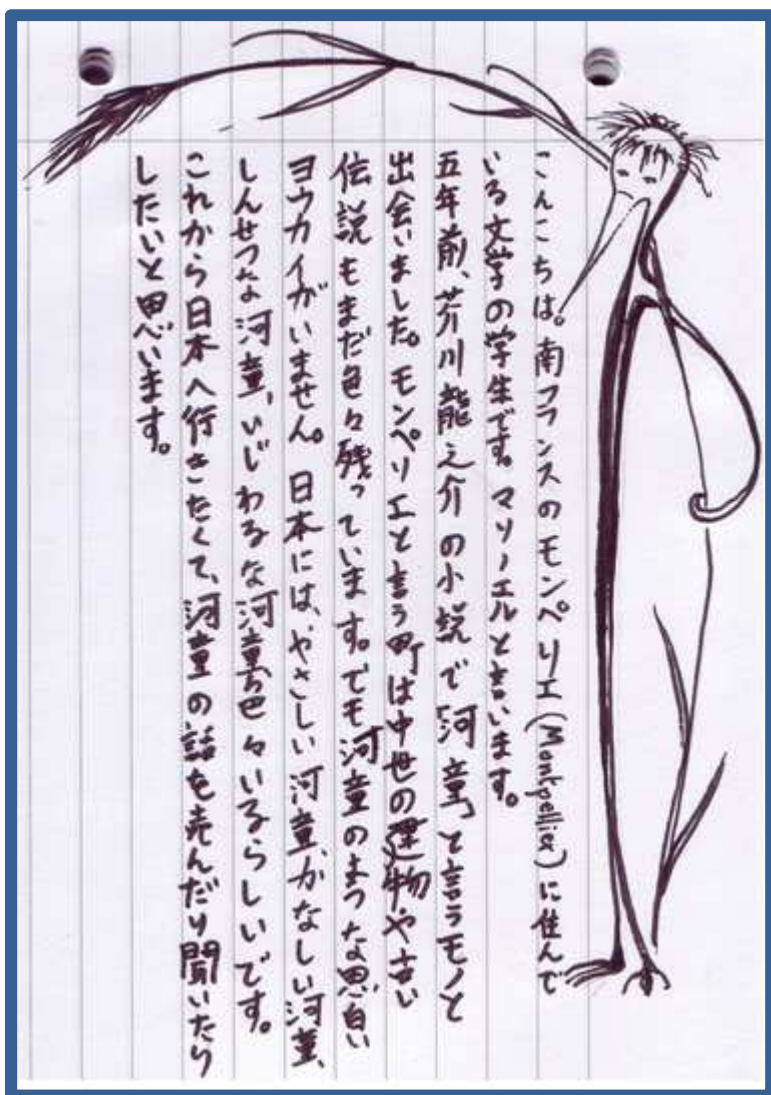 こんにちは。南フランスのモンペリエ(Montpellier)に住んで
いる文学の学生です。マリノエルと言います。
五年前、芥川龍之介の小説で「河童」と言うモノと
出会いました。モンペリエと言う町は中世の建物や古い
伝説もまだ色々残っています。でも河童のような思白い
ヨウカイがいません。日本には、やさしい河童、かなしい河童、
しんせつな河童、いじわるな河童、色々いるらしいです。
これから日本へ行きたくて、河童の話を売んだり聞いたり
したいと思います。